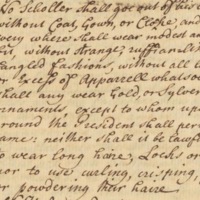 No Scholler shall goe out of his
without Coat, Gown, or Cloke, and
every where shall wear modest an
, without strange, ruffianlik
angled fashions, without all
or Excess of Apparrell whatso
shall any wear Gold, or Sylver
rnaments, except to whom up
round the President shall per
ame: neither shall it be lawf
to wear long haire, Locks or
nor to use curling, crisping
or powdering their haire